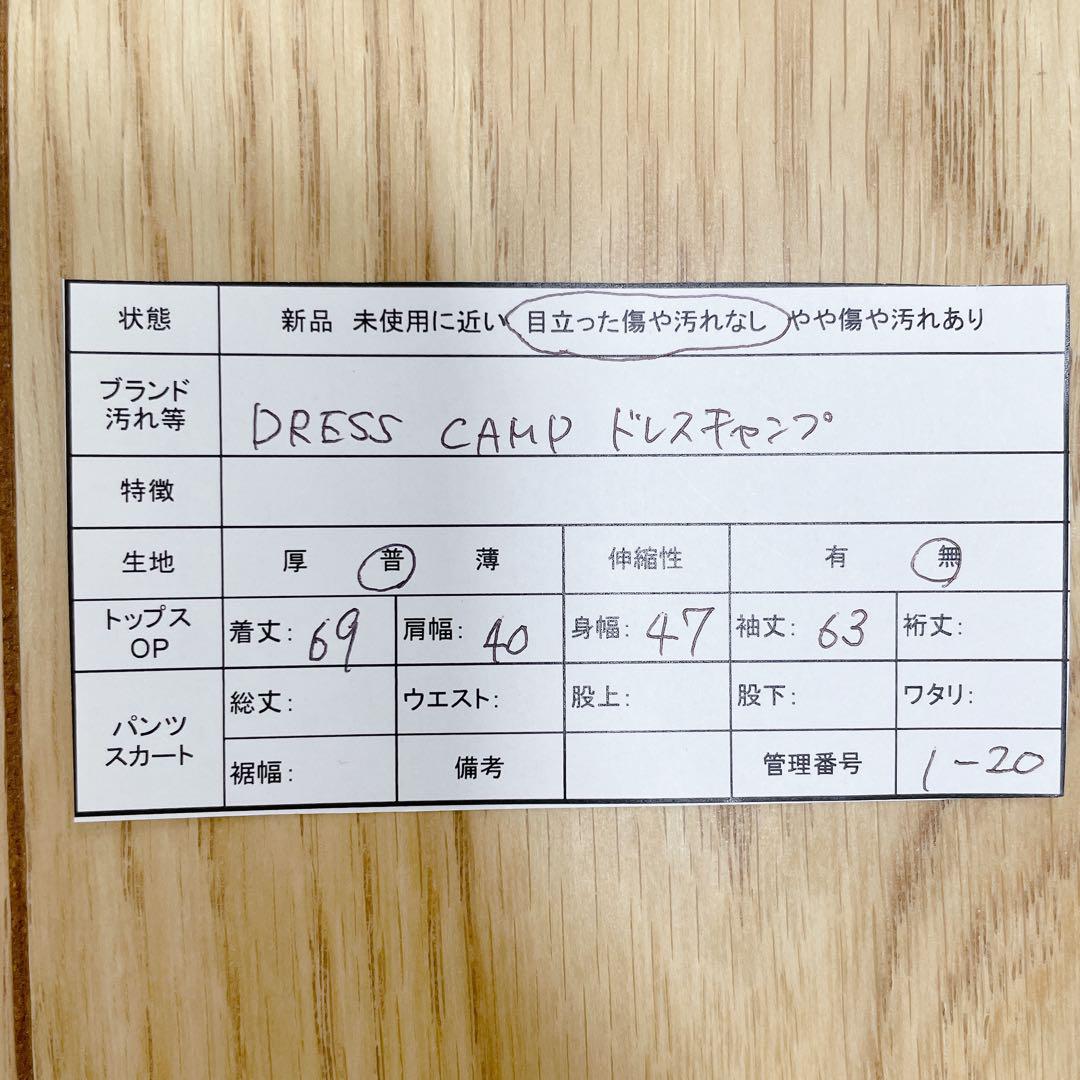 状態 新品 未使用に近い 目立った傷や汚れなし やや傷や汚れあり
ブランド
汚れ等
DRESS CAMP ドレスキャンプ
特徴
生地 厚 普 薄 伸縮性 有 無
トップス
OP
着丈: 69 肩幅: 40 身幅: 47 袖丈: 63 裄丈:
パンツ
スカート
総丈: ウエスト: 股上: 股下: ワタリ:
裾幅: 備考 管理番号 1-20